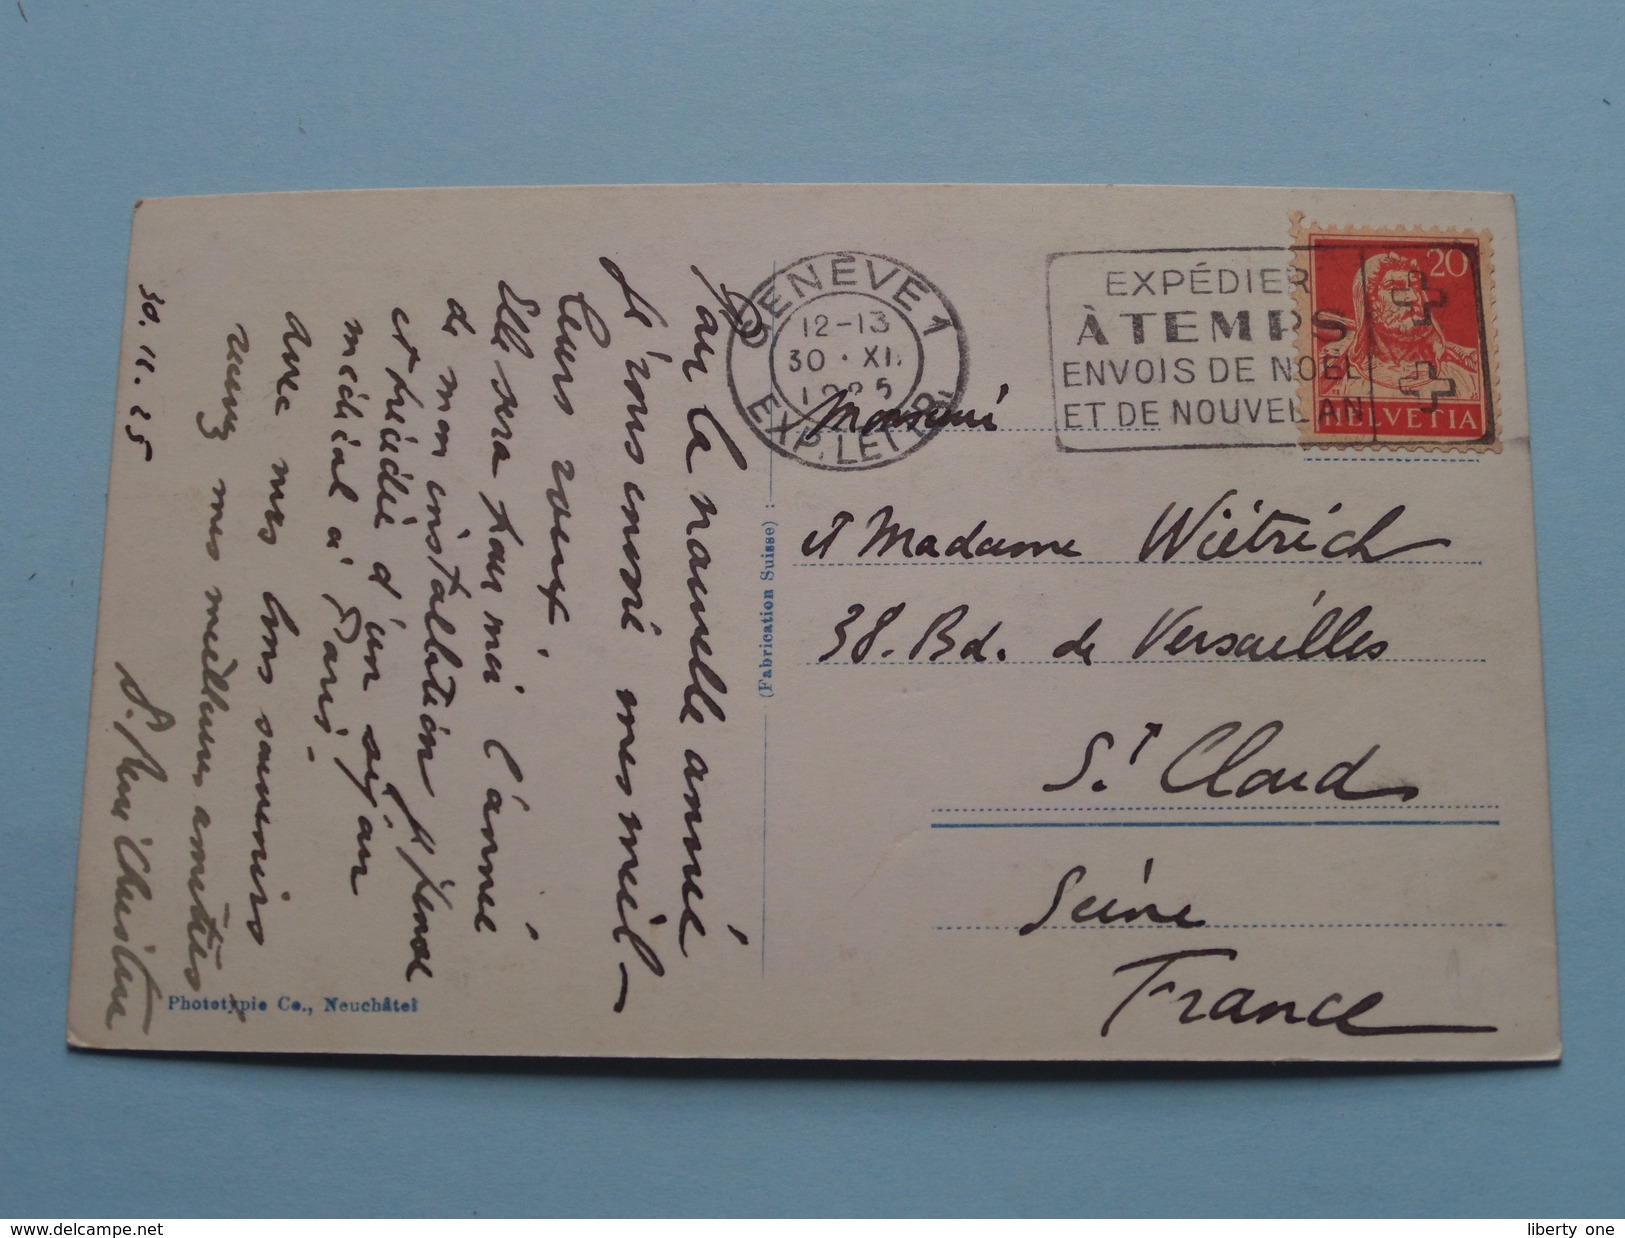 Pour la nouvelle année
Je vous envoie mes meil-
leurs voeux.
Elle sera pour moi l'année
de mon installation
et précédée d'un séjour
médical à Paris.
Avec mes bons souvenirs
recevez mes meilleures amitiés
30.12.25
GENÈVE 1
12-13
30.XII.
1925
EXP. LETTR.
EXPÉDIER
À TEMPS
ENVOIS DE NOËL
ET DE NOUVEL AN
20
HELVETIA
Monsieur
et Madame Wiétrich
38. Bd. de Versailles
St Cloud
Seine
France
(Fabrication Suisse)
Phototypie Co., Neuchâtel
www.delcampe.net
liberty one